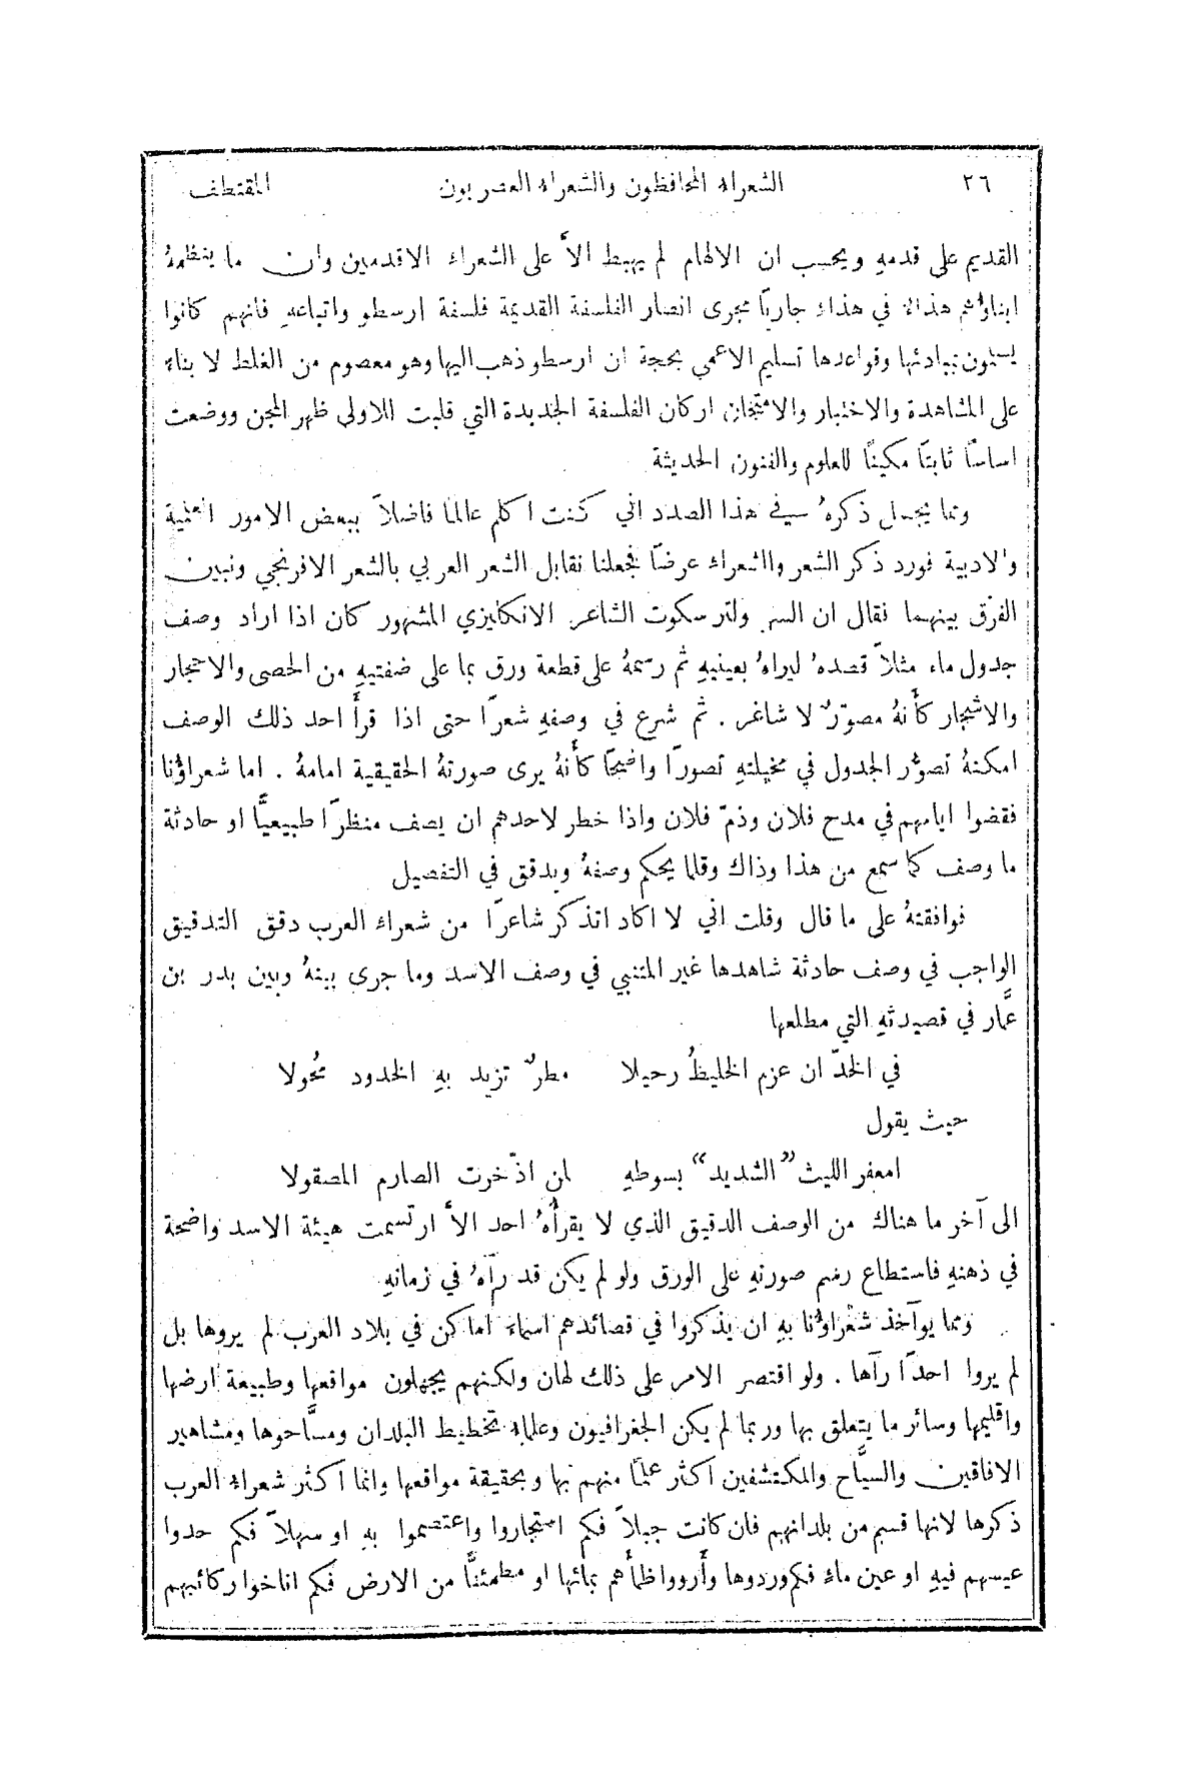 ٢٦ الشعراء المحافظون والشعراء العصريون المقتطف
القديم على قدمهِ ويحسب ان الالهام لم يهبط الاَّ على الشعراء الاقدمين وان ما ينظمهُ
ابناؤهم هذاءٌ في هذاءٍ جاريًا مجرى انصار الفلسفة القديمة فلسفة ارسطو واتباعهِ فانهم كانوا
يسلمون بمبادئها وقواعدها تسليم الاعمى بحجة ان ارسطو ذهب اليها وهو معصوم من الغلط لا بناءً
على المشاهدة والاختبار والامتحان اركان الفلسفة الجديدة التي قلبت للاولى ظهر المجن ووضعت
اساسًا ثابتًا مكينًا للعلوم والفنون الحديثة
ومما يجمل ذكرهُ في هذا الصدد اني كنت اكلم عالمًا فاضلاً ببعض الامور العلمية
والادبية فورد ذكر الشعر والشعراء عرضًا فجعلنا نقابل الشعر العربي بالشعر الافرنجي ونبين
الفرق بينهما فقال ان السر ولتر سكوت الشاعر الانكليزي المشهور كان اذا اراد وصف
جدول ماء مثلاً قصدهُ ليراهُ بعينيهِ ثم رسمهُ على قطعة ورق بما على ضفتيهِ من الحصى والاحجار
والاشجار كأَنهُ مصوّرٌ لا شاعر . ثم شرع في وصفهِ شعرًا حتى اذا قرأَ احد ذلك الوصف
امكنهُ تصوُّر الجدول في مخيلتهِ تصورًا واضحًا كأَنهُ يرى صورتهُ الحقيقية امامهُ . اما شعراؤُنا
فقضوا ايامهم في مدح فلان وذمّ فلان واذا خطر لاحدهم ان يصف منظرًا طبيعيًّا او حادثة
ما وصف كما سمع من هذا وذاك وقلما يحكم وصفهُ ويدقق في التفصيل
فوافقتهُ على ما قال وقلت اني لا اكاد اتذكر شاعرًا من شعراء العرب دقق التدقيق
الواجب في وصف حادثة شاهدها غير المتنبي في وصف الاسد وما جرى بينهُ وبين بدر بن
عمَّار في قصيدتهِ التي مطلعها
في الخدّ ان عزم الخليطُ رحيلا مطرٌ تزيد بهِ الخدود مُحولا
حيث يقول
امعفر الليث "الشديد" بسوطهِ لمن ادّخرت الصارم المصقولا
الى آخر ما هناك من الوصف الدقيق الذي لا يقرأُهُ احد الاَّ ارتسمت هيئة الاسد واضحة
في ذهنهِ فاستطاع رسم صورتهِ على الورق ولو لم يكن قد رآهُ في زمانهِ
ومما يوآخذ شعراؤُنا بهِ ان يذكروا في قصائدهم اسماءَ اماكن في بلاد العرب لم يروها بل
لم يروا احدًا رآها . ولو اقتصر الامر على ذلك لهان ولكنهم يجهلون مواقعها وطبيعة ارضها
واقليمها وسائر ما يتعلق بها وربما لم يكن الجغرافيون وعلماء تخطيط البلدان ومسَّاحوها ومشاهير
الافاقين والسيَّاح والمكتشفين اكثر علمًا منهم بها وبحقيقة مواقعها وانما اكثر شعراء العرب
ذكرها لانها قسم من بلدانهم فان كانت جبلاً فكم استجاروا واعتصموا بهِ او سهلاً فكم حدوا
عيسهم فيهِ او عين ماءٍ فكم وردوها وأَرووا ظمأَهم بمائها او مطمئنًّا من الارض فكم اناخوا ركائبهم